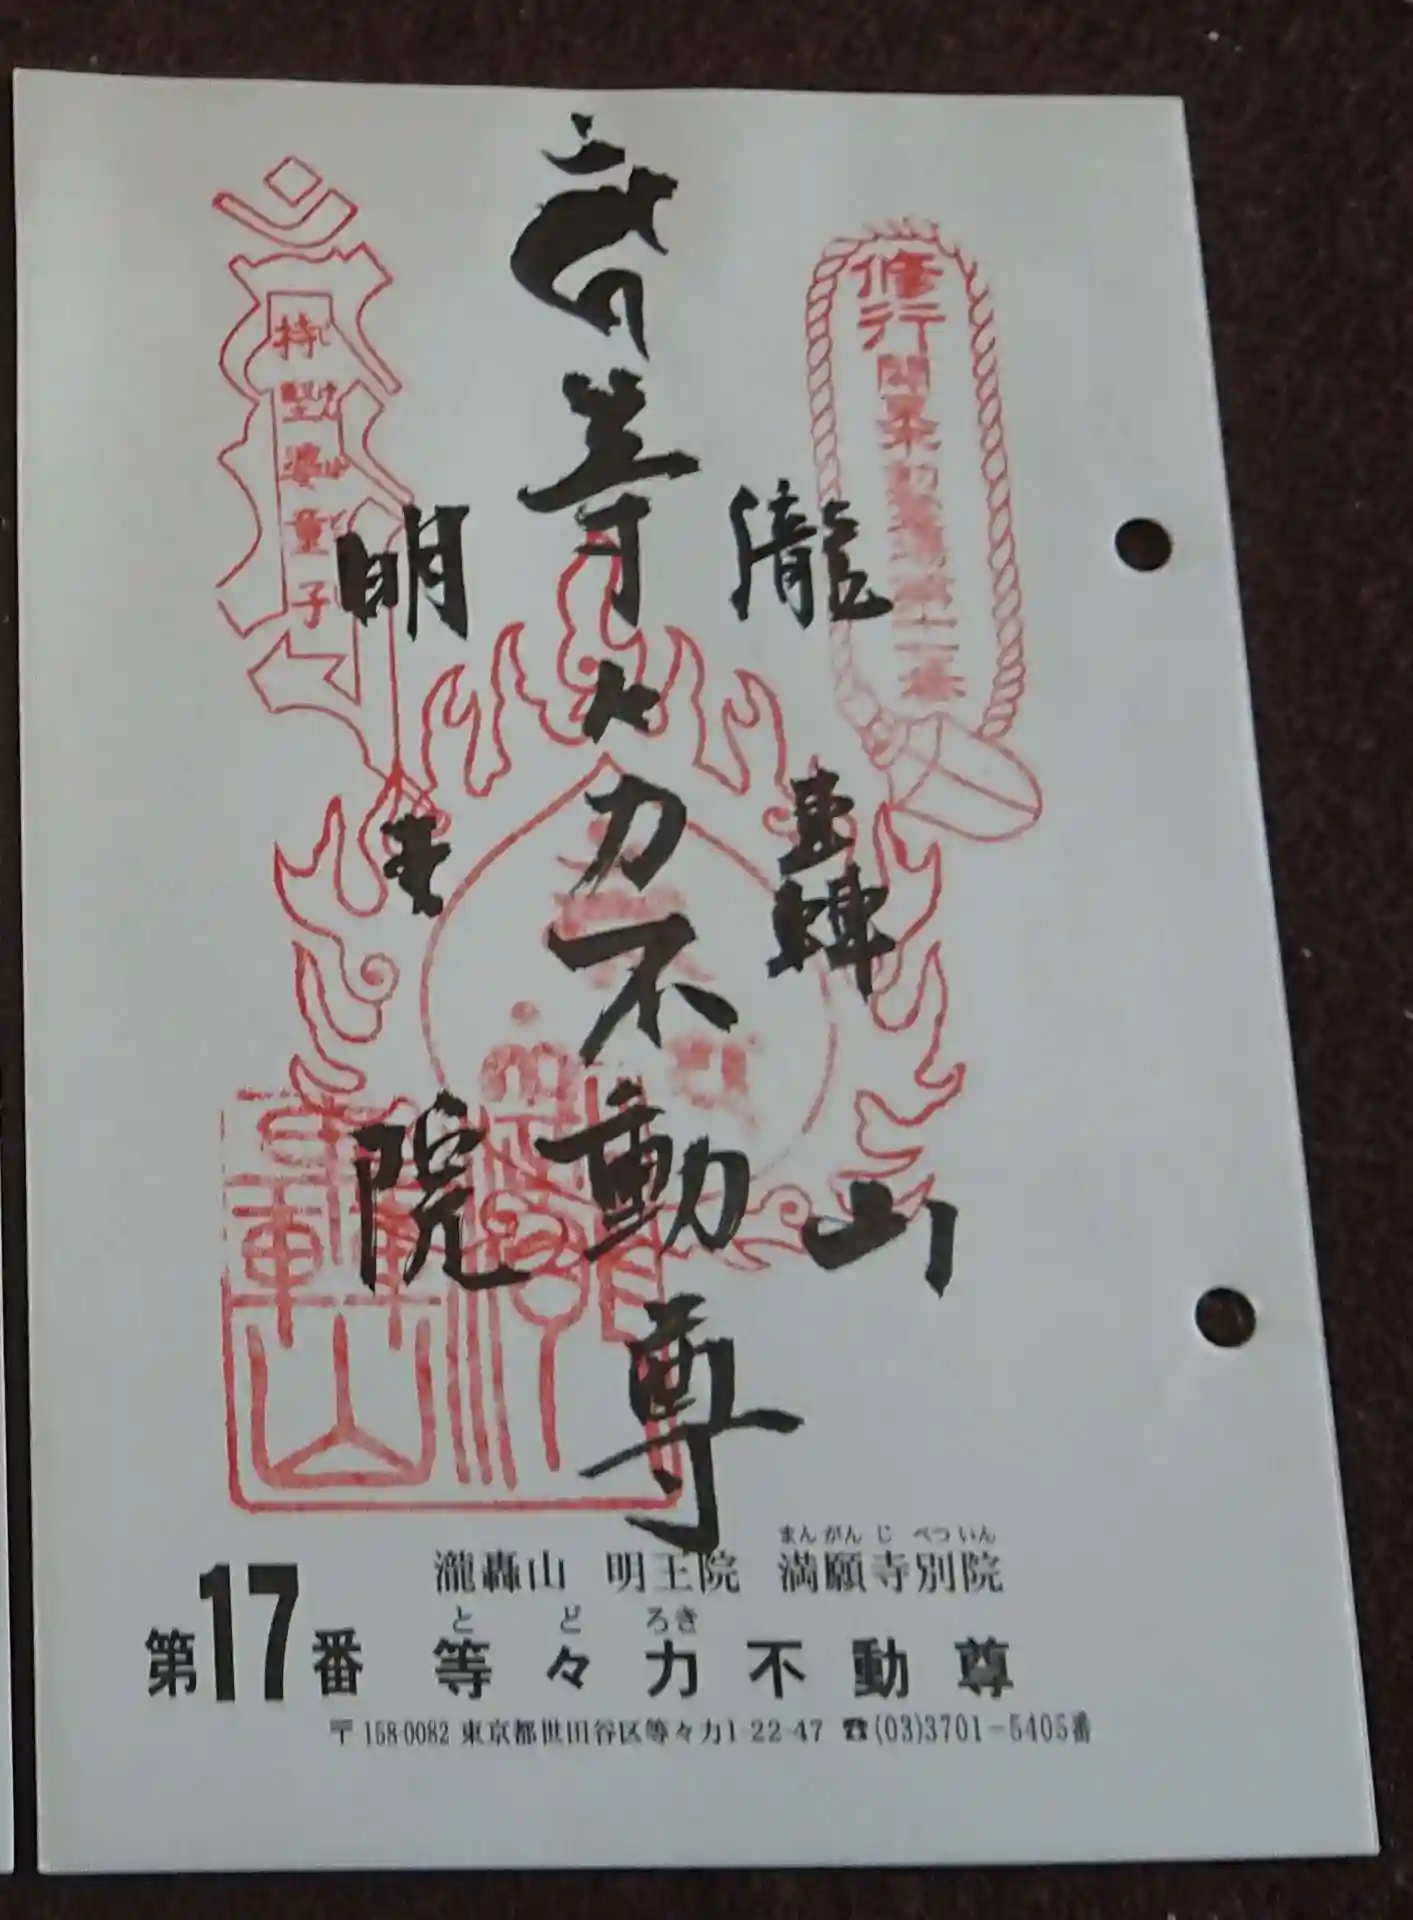 修行
持堅婆童子
奉
等々力不動尊
瀧
轟
山
明
王
院
まんがんじ べついん
瀧轟山 明王院 満願寺別院
と ど ろき
第17番 等々力不動尊
〒158-0082 東京都世田谷区等々力1-22-47 ☎(03)3701-5405番